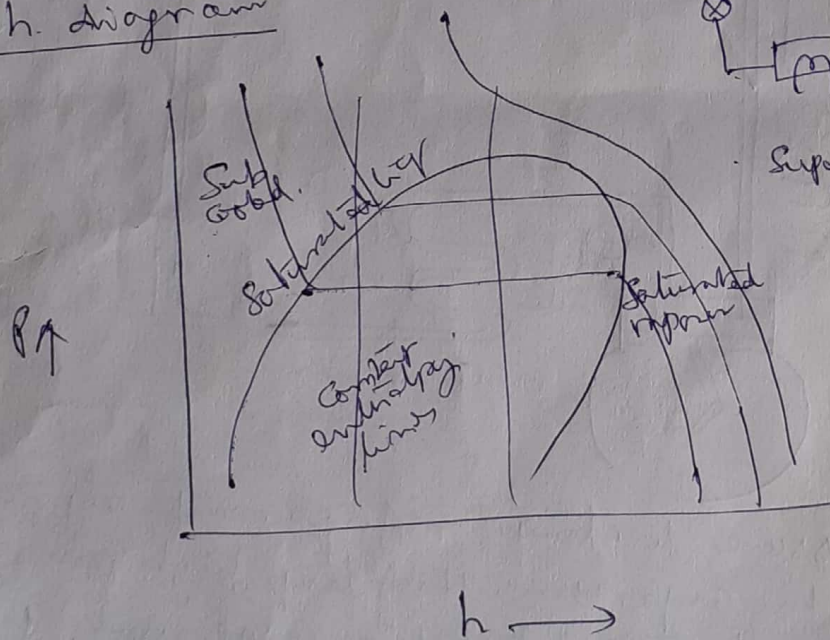 h. diagram
Sub
cooled.
Saturated liq
Supe
P↑
Saturated
vapour
Constant
enthalpy
lines
h →